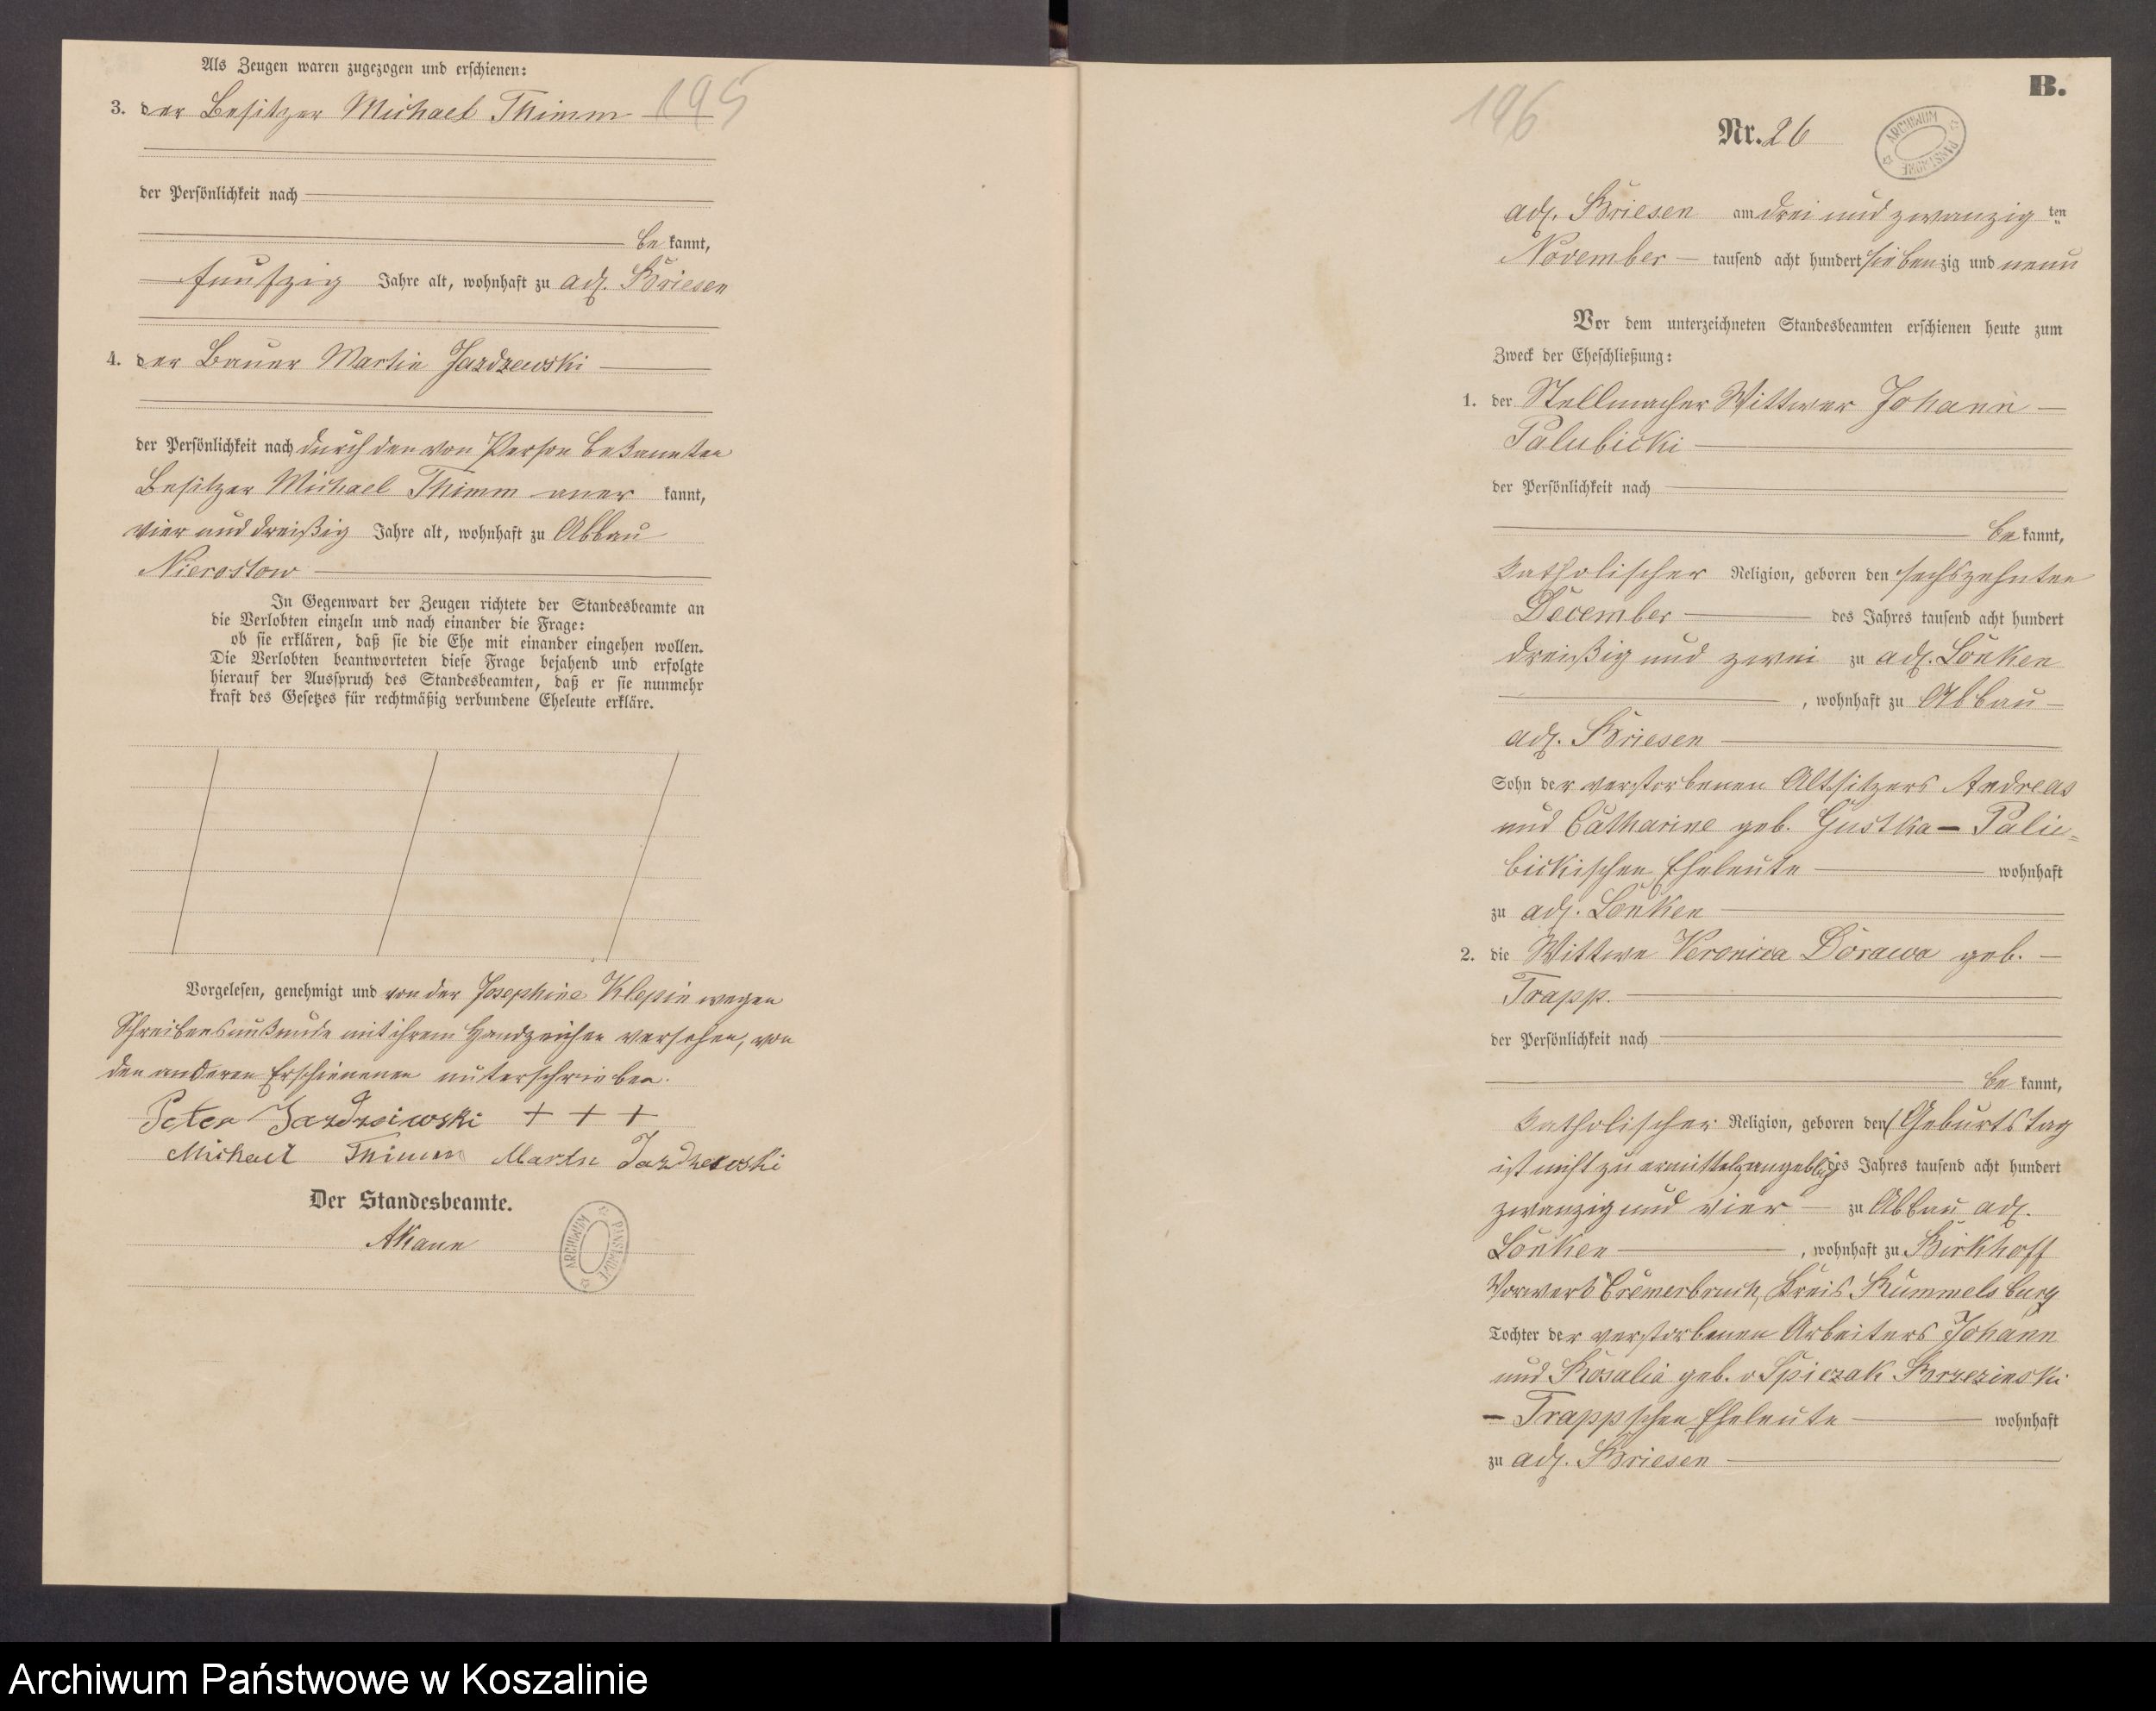 Als Zeugen waren zugezogen und erschienen:
195
3. der Besitzer Michael Thimm
der Persönlichkeit nach
be kannt,
funfzig Jahre alt, wohnhaft zu adl. Briesen
4. der Bauer Martin Jazdzewski
der Persönlichkeit nach durch den von Person bekannten
Besitzer Michael Thimm aner kannt,
vier und dreißig Jahre alt, wohnhaft zu Abbau
Nierostow
In Gegenwart der Zeugen richtete der Standesbeamte an
die Verlobten einzeln und nach einander die Frage:
ob sie erklären, daß sie die Ehe mit einander eingehen wollen.
Die Verlobten beantworteten diese Frage bejahend und erfolgte
hierauf der Ausspruch des Standesbeamten, daß er sie nunmehr
kraft des Gesetzes für rechtmäßig verbundene Eheleute erkläre.
Vorgelesen, genehmigt und von der Josephine Klepin wegen
Schreibensunkunde mit ihrem Handzeichen versehen, von
den anderen Erschienenen unterschrieben.
Peter Jazdzewski + + +
Michael Thimm Martin Jazdzewski
Der Standesbeamte.
ARCHIWUM PAŃSTWOWE
B.
196
Nr. 26
ARCHIWUM PAŃSTWOWE
adl. Briesen am drei und zwanzig ten
November tausend acht hundert siebenzig und neun
Vor dem unterzeichneten Standesbeamten erschienen heute zum
Zweck der Eheschließung:
1. der Stellmacher Wittwer Johann
Palubicki
der Persönlichkeit nach
be kannt,
katholischer Religion, geboren den sechszehnten
December des Jahres tausend acht hundert
dreißig und zwei zu adl. Lonken
, wohnhaft zu Abbau
adl. Briesen
Sohn der verstorbenen Altsitzers Andreas
und Catharine geb. Gustka - Palu-
bickischen Eheleute wohnhaft
zu adl. Lonken
2. die Wittwe Veronica Dorawa geb.
Trapp.
der Persönlichkeit nach
be kannt,
katholischer Religion, geboren den (Geburtstag
ist nicht zu ermitteln) angeblich des Jahres tausend acht hundert
zwanzig und vier zu Abbau adl.
Lonken , wohnhaft zu Birkhoff
Vorwerk Cremerbruch, Kreis Rummelsburg
Tochter der verstorbenen Arbeiters Johann
und Rosalia geb. v Spiczak Brzezinski
- Trappschen Eheleute wohnhaft
zu adl. Briesen
Archiwum Państwowe w Koszalinie